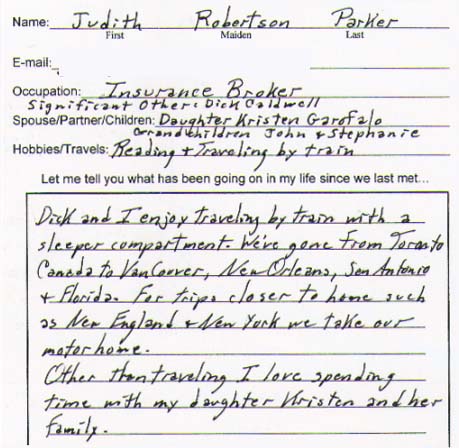 Name: Judith Robertson Parker
First Maiden Last
E-mail:
Occupation: Insurance Broker
Significant Other: Dick Caldwell
Spouse/Partner/Children: Daughter Kristen Garofalo
Grandchildren John & Stephanie
Hobbies/Travels: Reading & Traveling by train
Let me tell you what has been going on in my life since we last met...
Dick and I enjoy traveling by train with a
sleeper compartment. We've gone from Toronto
Canada to VanCouver, New Orleans, San Antonio
& Florida. For trips closer to home such
as New England & New York we take our
motorhome.
Other than traveling I love spending
time with my daughter Kristen and her
family.